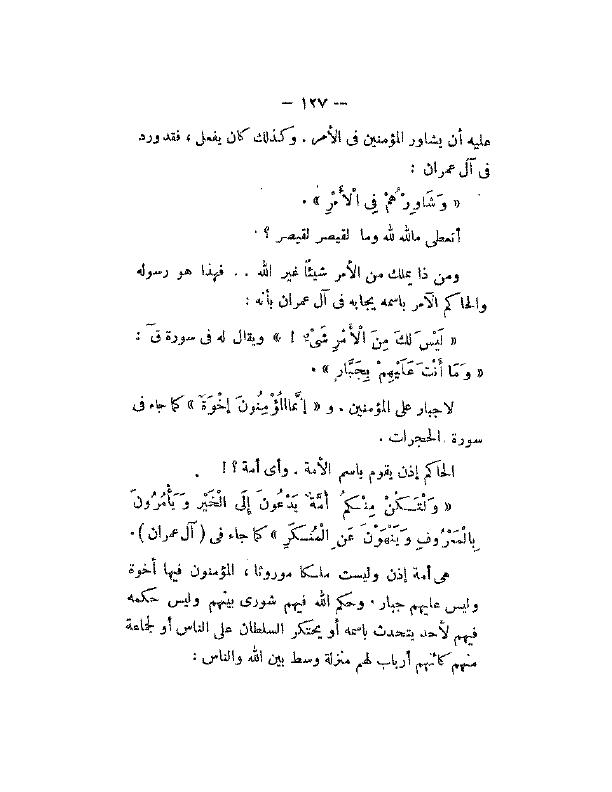 — ١٢٧ —
عليه أن يشاور المؤمنين فى الأمر . وكذلك كان يفعل ، فقد ورد
فى آل عمران :
« وَشَاوِرْهُمْ فِى الْأَمْرِ » .
أنعطى مالله لله وما لقيصر لقيصر ؟ .
ومن ذا يملك من الأمر شيئاً غير الله .. فهذا هو رسوله
والحاكم الآمر باسمه يجابه فى آل عمران بأنه :
« لَيْسَ لَكَ مِنَ الْأَمْرِ شَىْءٌ ! » ويقال له فى سورة قَ :
« وَمَا أَنْتَ عَلَيْهِمْ بِجَبَّارٍ » .
لاجبار على المؤمنين . و « إِنَّمَا الْمُؤْمِنُونَ إِخْوَةٌ » كما جاء فى
سورة الحجرات .
الحاكم إذن يقوم باسم الأمة . وأى أمة ؟ !
« وَلْتَكُنْ مِنْكُمْ أُمَّةٌ يَدْعُونَ إِلَى الْخَيْرِ وَيَأْمُرُونَ
بِالْمَعْرُوفِ وَيَنْهَوْنَ عَنِ الْمُنْكَرِ » كما جاء فى ( آل عمران ) .
هى أمة إذن وليست ملكا موروثا ، المؤمنون فيها أخوة
وليس عليهم جبار . وحكم الله فيهم شورى بينهم وليس حكمه
فيهم لأحد يتحدث باسمه أو يحتكر السلطان على الناس أو لجماعة
منهم كأنهم أرباب لهم منزلة وسط بين الله والناس :